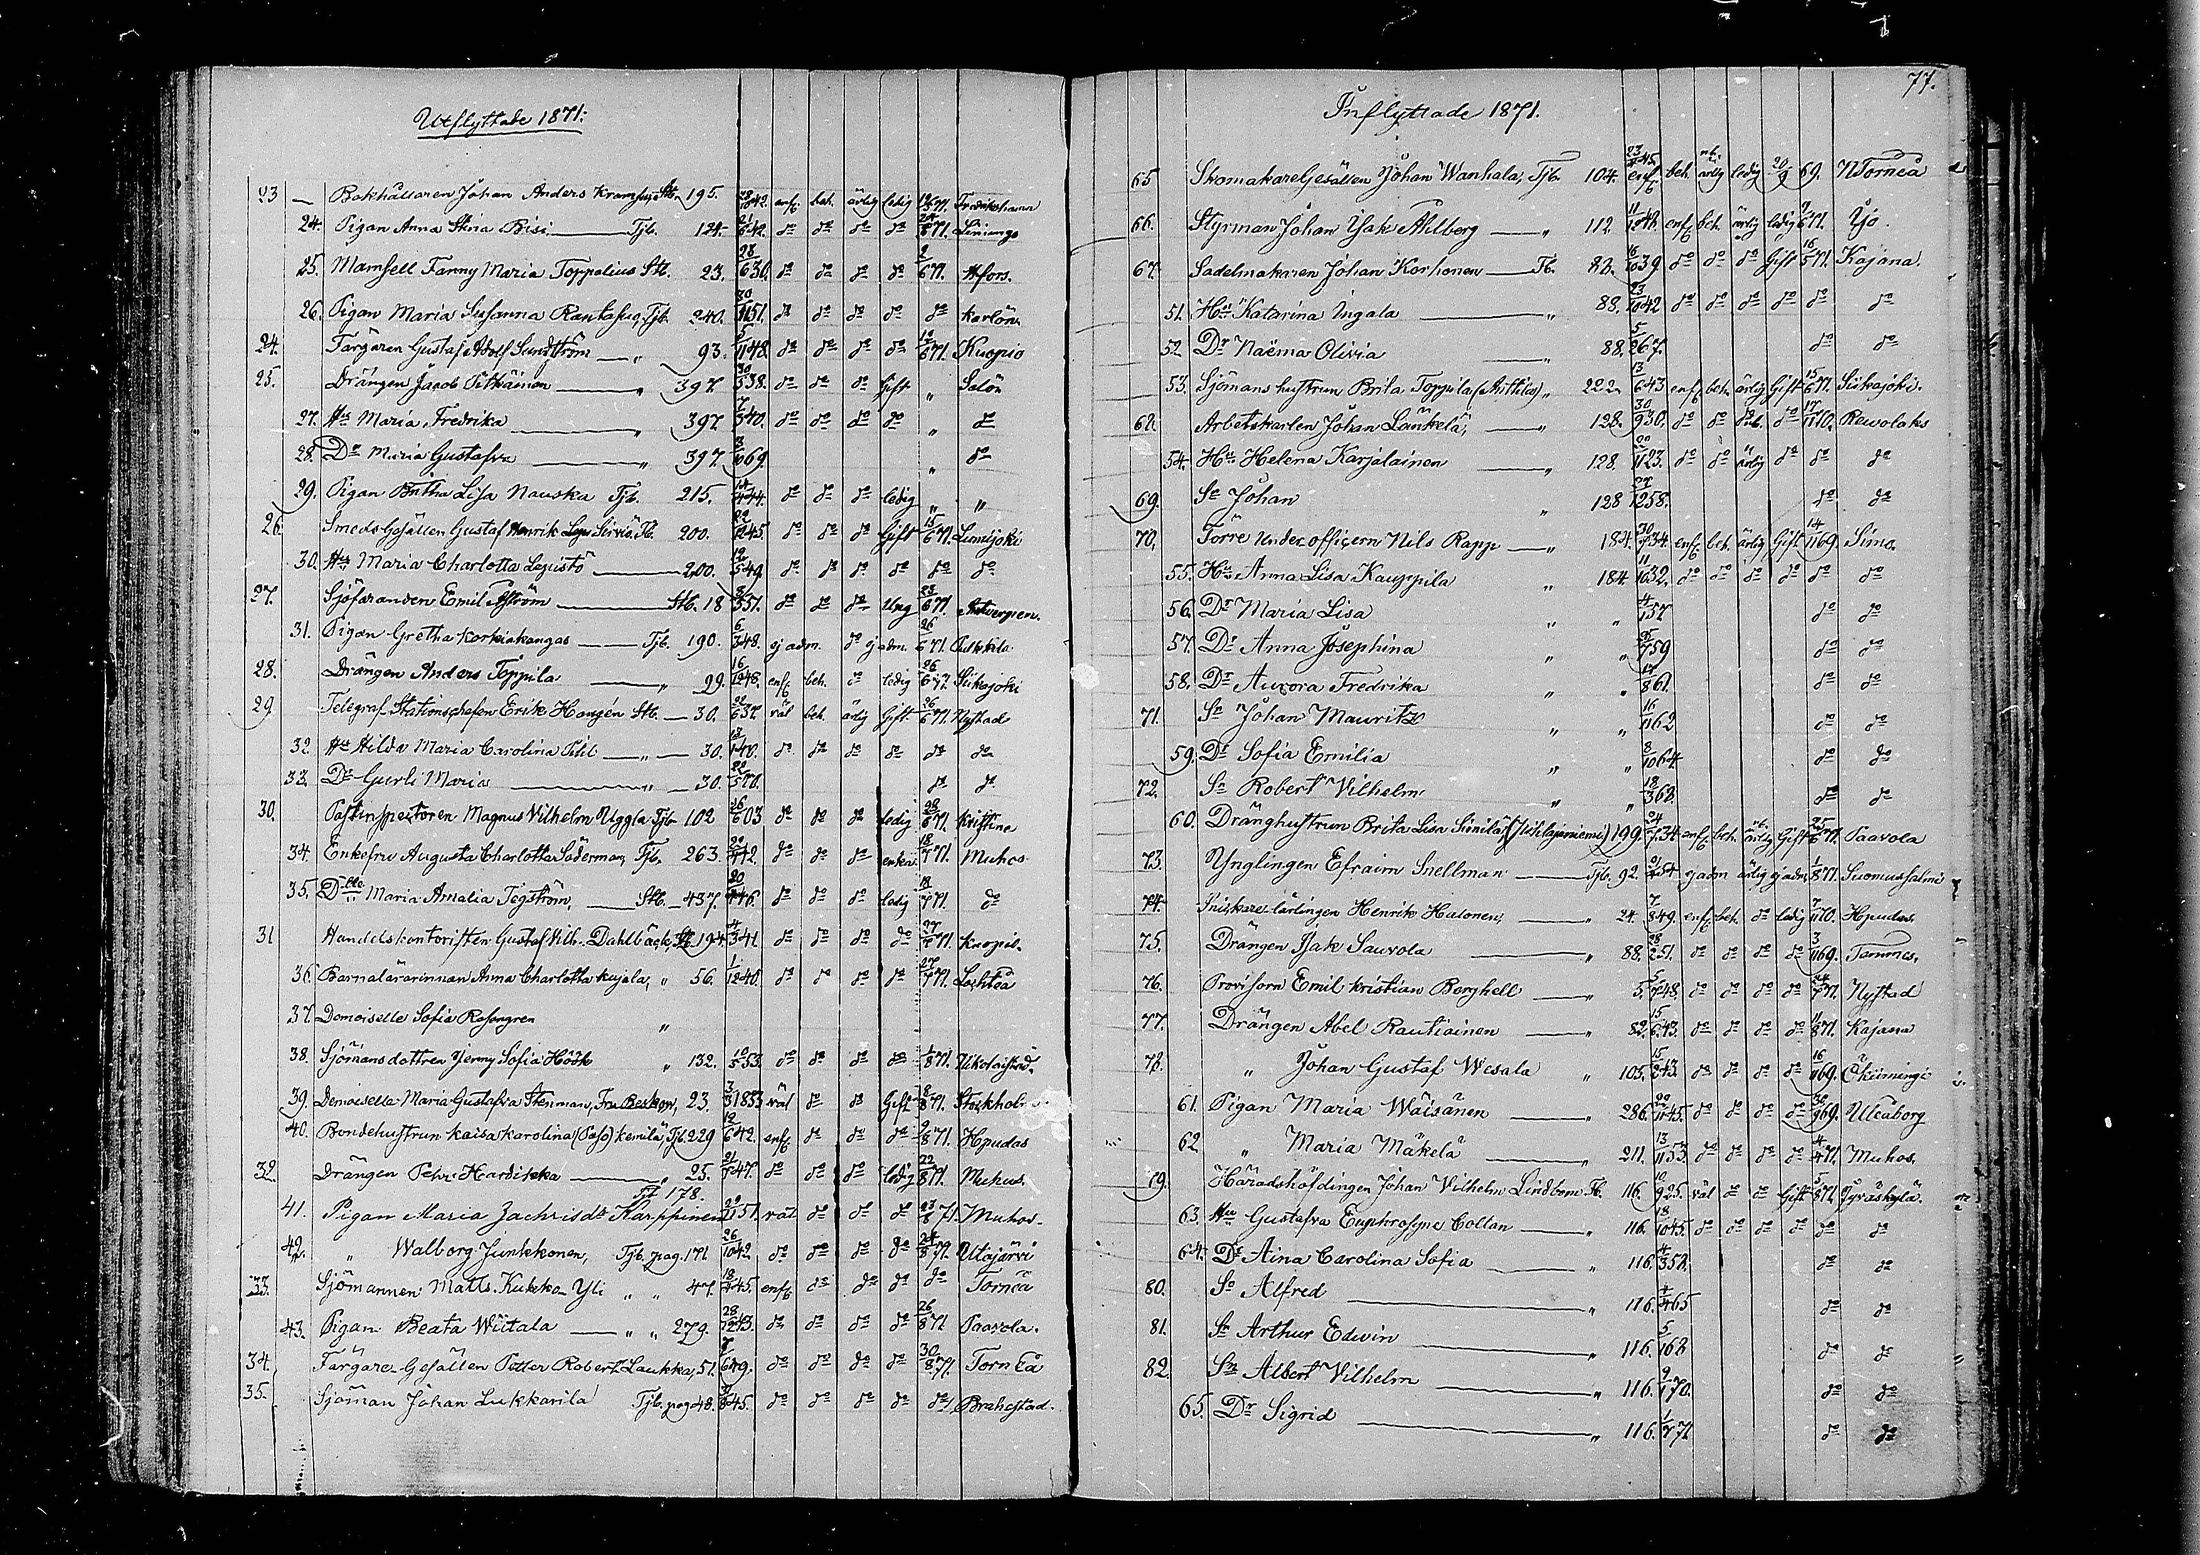 77.
Utflyttade 1871.
23 — Bokhållaren Johan Anders Stb. 195. 1042. enf. beh. ärlig ledig 571. Fredrikshamn
24. Pigan Anna Stina Bisi Tjb. 124. 642. do do do do 871. Liminga
25. Mamsell Fanny Maria Toppelius Stb. 23. 28/630. do do do do 2/671. Hfors.
26. Pigan Maria Susanna Tjb. 240. 30/1151. do do do do do Karlön.
24. Färgaren Gustaf Adolf Sundström „ 93. 5/1148. do do do do 671. Kuopio
25. Drängen Jacob Pitkäinen „ 397 30/538. do do do Gift „ Salön
27. Hu Maria Fredrika „ 397. 7/340. do do do do „ do
28. Dr Maria Gustafva „ 397. 1069. „ do
29. Pigan Lisa Nauska Tjb. 215. 444. do do do ledig „ „
26. Smeds Gesällen Gustaf Henrik 200. 22/1245. do do do Gift 15/671. Lumijoki
30. Hu Maria Charlotta Lepistö 200. 549. do do do do do do
27. Sjöfaranden Emil Åström Stb. 18 551. do do do Ung 671. Antverpen.
31. Pigan Gretha Korkiakangas Tjb. 190. 6/348. ej adm. do ej adm. 26/671. Pulkkila
28. Drängen Anders Toppila „ 29. 16/1248. enf. beh. do ledig 26/671. Siikajoki
29 Telegraf Stationschefen Erik Haugén Stb. 30. 637. väl beh. ärlig Gift 26/671. Nystad
32. Hu Hilda Maria Carolina „ 30. 140. do do do do do do
33. Dr Gurli Maria „ 30. 22/570. do do
30. Postinspectoren Magnus Vilhelm Uggla Tjb. 102 26/603 do do do ledig 28/671. Kristine
34. Enkefru Augusta Charlotta Söderman, Tjb. 263. 442. do do do enka 18/771. Muhos
35. Dlle Maria Amalia Tegström, Stb. 437. 20/446. do do do ledig 18/771. do
31 Handelskontoristen Gustaf Vilh. Dahlbäck, Stb. 194. 341. do do do do 27/771. Kuopio.
36. Barnalärarinnan Anna Charlotta Kajala, „ 56. 1/1240. do do do do 27/771. Lochteå
37. Demoiselle Sofia Rosengren „
38. Sjömansdottren Jenny Sofia Höök „ 132. 10/553. do do do do 1/871. Nikolaistad.
39. Demoiselle Maria Gustafva Stenman, Fru Beskow, 23. 3/31833 väl do do Gift 8/871. Stockholm
40. Bondehustrun Kaisa Karolina (Paso) Kemilä, Tjb. 229 12/642. enf. do do do 9/871. Hpudas
32. Drängen Petr Hardikka „ 25. 21/747. do do do ledig 22/871. Muhos
Tf 178.
41. Pigan Maria Zachrisdr Karppinen 1151. väl do do do 23/871. Muhos.
42. „ Walborg Junkkonen, Tjb. pag. 171 26/1042. do do do do 24/871. Utajärvi
33. Sjömannen Matts Kukko Yli „ „ 47. 18/245. enf. do do do do Torneå
43. Pigan Beata Wiitala „ „ 279. 28/1243. do do do do 26/871 Paavola.
34. Färgare Gesällen Petter Robert Laukka, 51. 7/649. do do do do 30/871. Torneå
35. Sjöman Johan Lukkarila Tjb. pag 48. 845. do do do do do Brahestad.
Inflyttade 1871.
65 Skomakare Gesällen Johan Wanhala, Tjb. 104. 23/45. enf. beh. ärlig ledig 20/9 69. NTorneå
66. Styrman Johan Isak Ahlberg „ 112. 11/1248. enf. beh. ärlig ledig 7/671. Ijo.
67. Sadelmakaren Johan Korhonen Tb. 88. 16/1039 do do do Gift 16/571. Kajana.
51. Hu Katarina Ingala „ 88. 23/1042 do do do do do do
52 Dr Naëma Olivia 88. 5/267. do do
53. Sjömans hustrun Brita Toppila (Anttila) „ 222. 13/643 enf. beh. ärlig Gift 15/671. Siikajoki.
68. Arbetskarlen Johan Länkelä, „ 128. 30/930. do do do 17/1170. Rewolaks
54. Hu Helena Karjalainen „ 128. 1123. do do ärlig do do do
69. Sn Johan „ 128 27/1258. do do
70. Förre underofficern Nils Rapp „ 184. 30/734. enf. beh. ärlig Gift 14/1169. Simo
55. Hu Anna Lisa Kauppila „ 184 11/1032. do do do do do do
56. Dr Maria Lisa „ „ 4/157 do do
57. Dr Anna Josephina „ „ 759 do do
58. Dr Aurora Fredrika „ „ 861. do do
71. Sn Johan Mauritz „ „ 16/1162 do do
59. Dr Sofia Emilia „ „ 8/1064 do do
72. Sn Robert Vilhelm „ „ 18/368. do do
60. Dränghustrun Brita Lisa Simila, 199. 24/734 enf. beh. ärlig Gift 25/671. Paavola
73. Ynglingen Efraim Snellman Tjb. 92. 54 ej adm ärlig ej adm 1/871. Suomussalmi
74. Snickare lärlingen Henrik Halonen, „ 24. 7/849. enf. beh. do ledig 7/1170. Hpudas
75. Drängen Isak Sauvola „ 88. 28/251. do do do do 3/1169. Tammes.
76. Provisorn Emil Kristian Borghell „ 5. 5/748. do do do do 24/771. Nystad
77. Drängen Abel Rautiainen „ 82. 15/643. do do do do 11/871. Kajana
78. „ Johan Gustaf Wesala „ 105. 15/243. do do do do 16/1169. Ökiiminge
61. Pigan Maria Wäisänen „ 286. 22/1145. do do do do 30/969. Uleåborg
62 „ Maria Mäkelä „ 211. 13/1153. do do do do 4/471. Muhos.
79. Häradshöfdingen Johan Vilhelm Lindbom Tb. 116. 10/925. väl do do Gift 5/871. Jyväskylä.
63. Hu Gustafva Euphrosyne Coltan „ 116. 18/1045. do do do do do do
64. Dr Aina Carolina Sofia „ 116. 4/358. do do
80. So Alfred „ 116. 4/465 do do
81. Sn Arthur Edwin „ 116. 5/168 do do
82. Sn Albert Vilhelm „ 116. 9/170. do do
65. Dr Sigrid „ 116. 1/771 do do